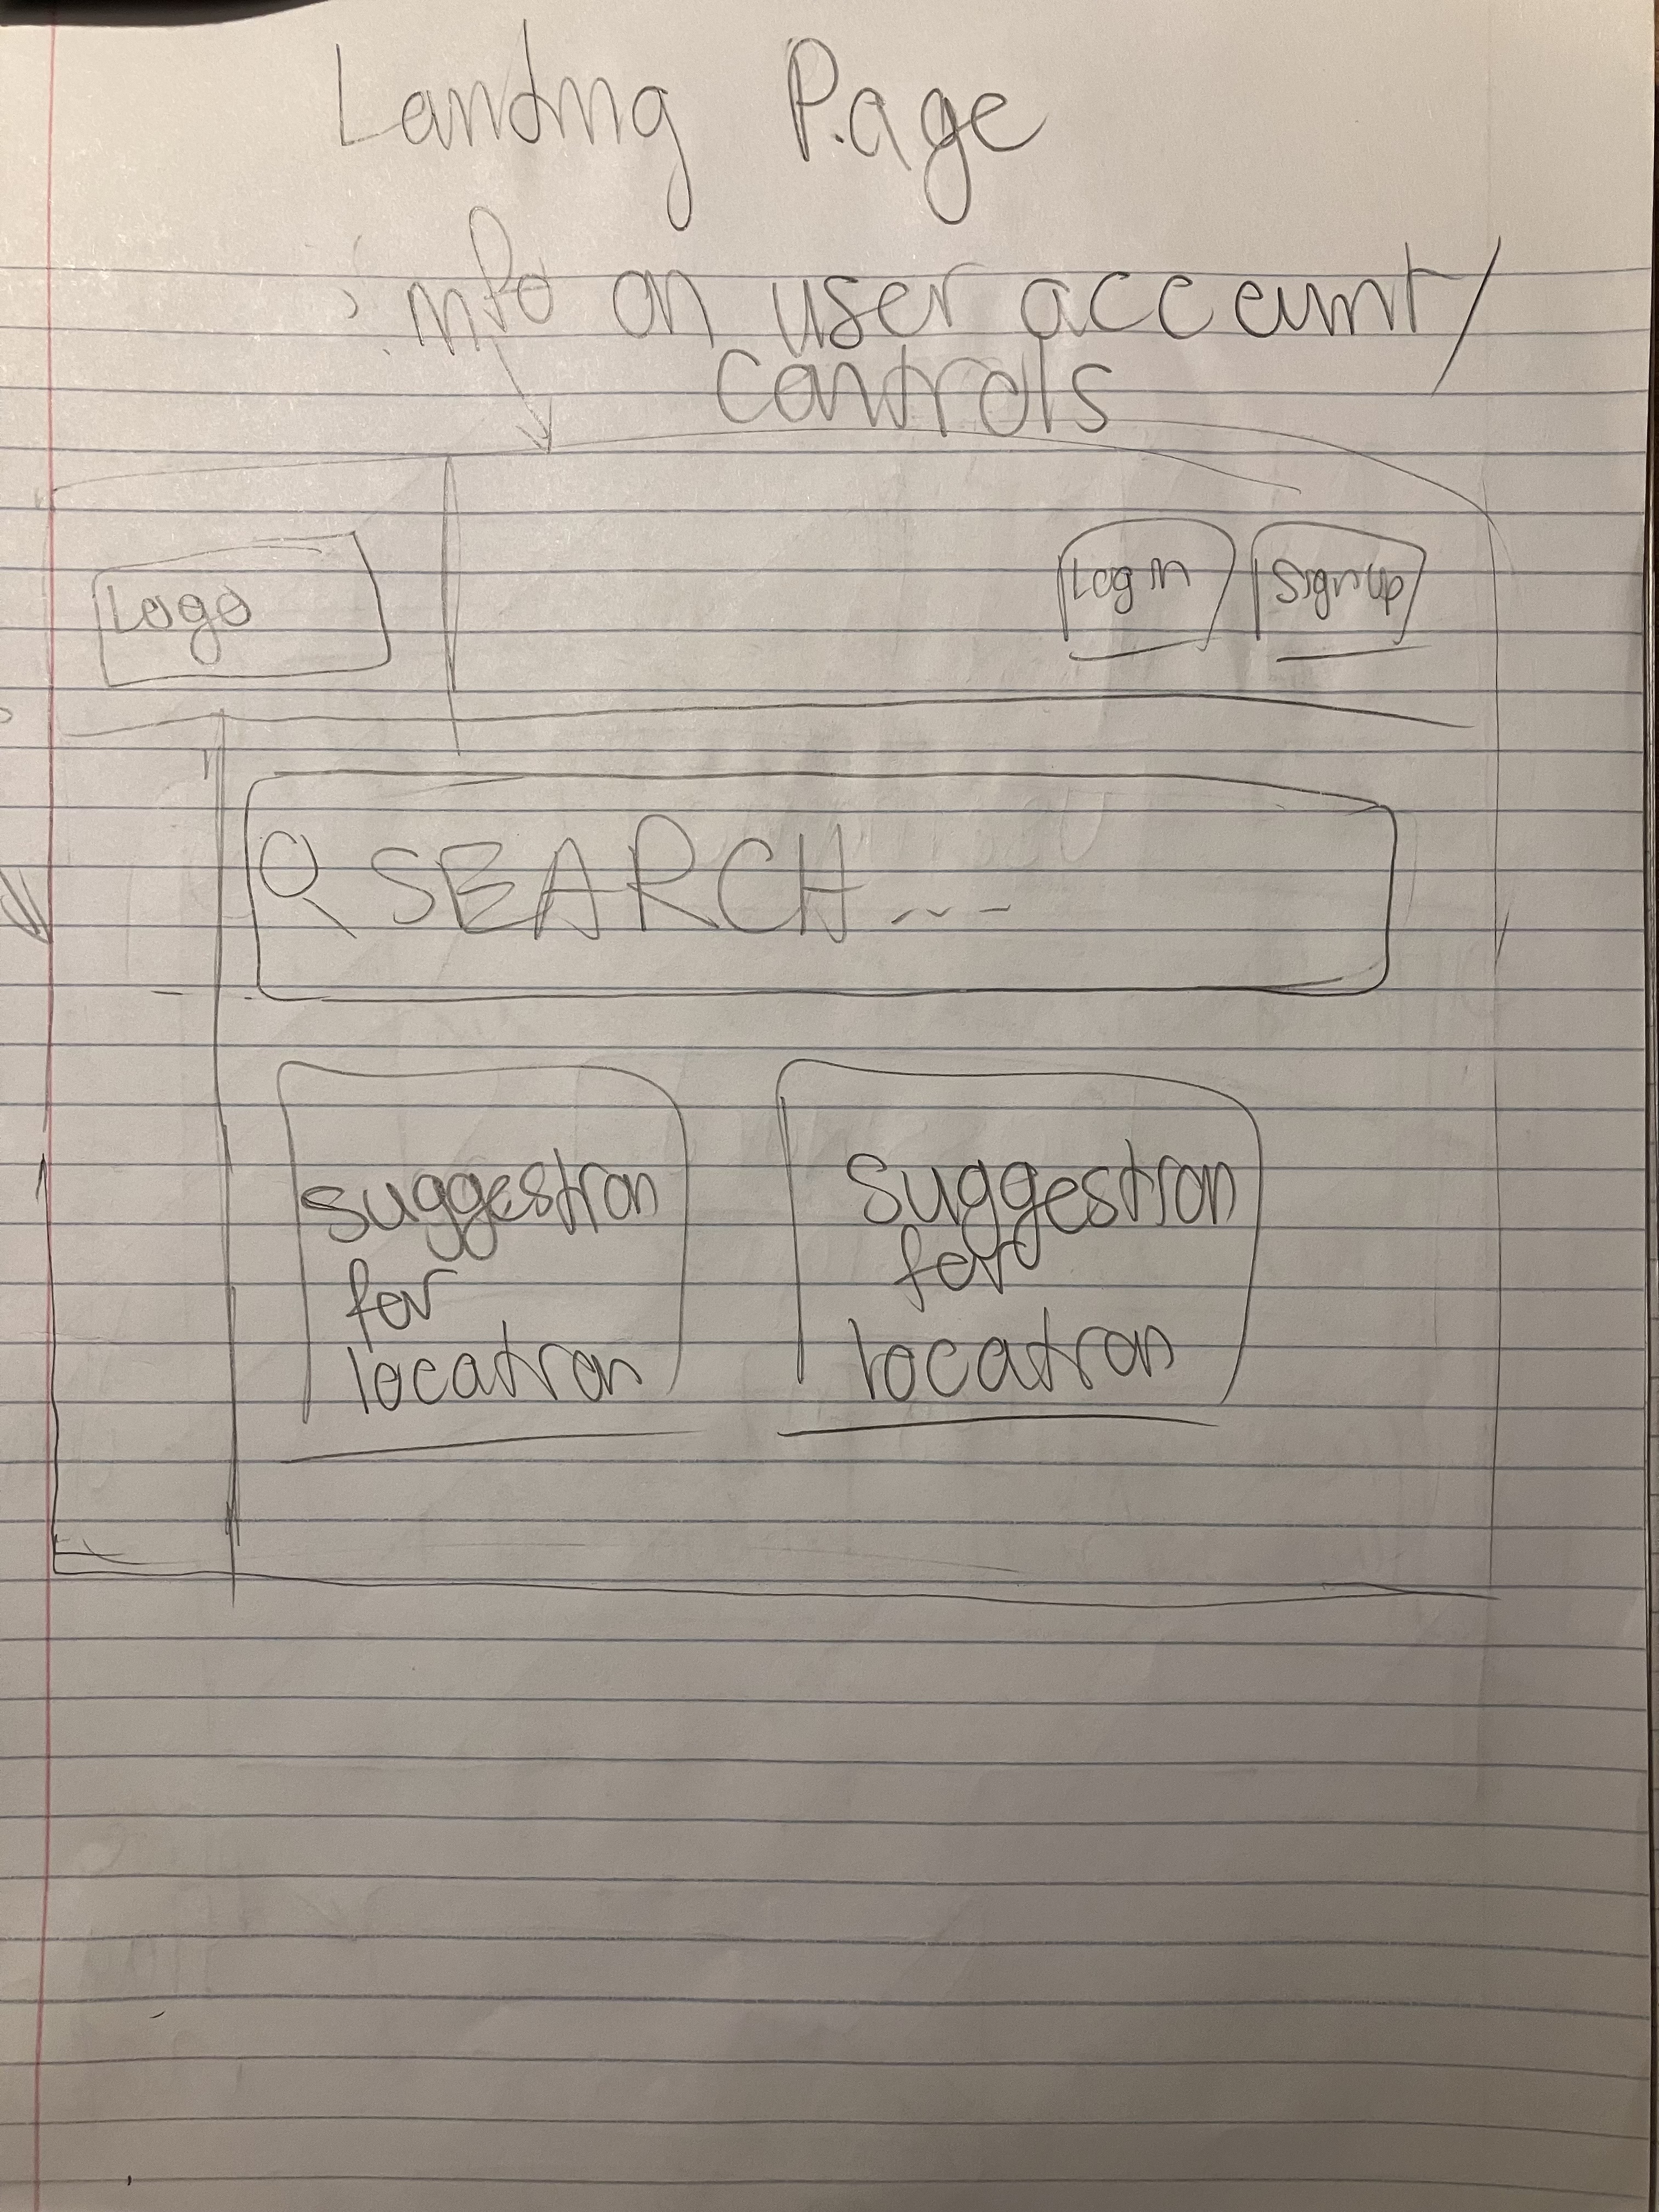 Landing Page
info on user account/
controls
Logo
Log in
Sign up
SEARCH...
suggestion
for
location
suggestion
for
location